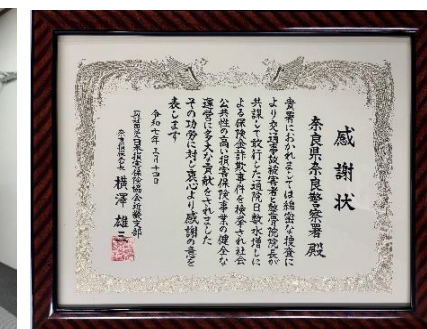 感謝状
奈良県奈良警察署 殿
貴署におかれましては綿密な捜査に
より交通事故被害者と整骨院院長が
共謀して敢行した通院日数水増しに
よる保険金詐欺事件を検挙され社会
公共性の高い損害保険事業の健全な
運営に多大な貢献をされました
その功労に対し衷心より感謝の意を
表します
令和七年三月十四日
日本損害保険協会近畿支部
横澤 雄二